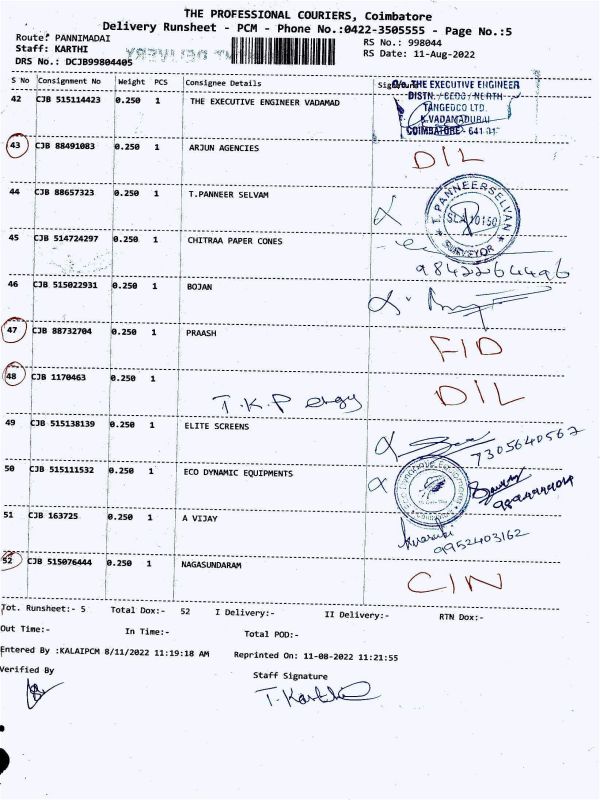 THE PROFESSIONAL COURIERS, Coimbatore
Delivery Runsheet - PCM - Phone No.:0422-3505555 - Page No.:5
Route: PANNIMADAI RS No.: 998044
Staff: KARTHI RS Date: 11-Aug-2022
DRS No.: DCJB99804405
S No Consignment No Weight PCS Consignee Details Signature
O/o. THE EXECUTIVE ENGINEER
42 CJB 515114423 0.250 1 THE EXECUTIVE ENGINEER VADAMAD
TANGEDCO LTD.
K.VADAMADURAI
COIMBATORE - 641
43 CJB 88491083 0.250 1 ARJUN AGENCIES DIL
44 CJB 88657323 0.250 1 T.PANNEER SELVAM
T. PANNEERSELVAN
SLA 10150
SURVEYOR
45 CJB 514724297 0.250 1 CHITRAA PAPER CONES
9842264496
46 CJB 515022931 0.250 1 BOJAN
47 CJB 88732704 0.250 1 PRAASH FID
48 CJB 1170463 0.250 1 DIL
T.K.P
49 CJB 515138139 0.250 1 ELITE SCREENS
7305640567
50 CJB 515111532 0.250 1 ECO DYNAMIC EQUIPMENTS
51 CJB 163725 0.250 1 A VIJAY
9952403162
52 CJB 515076444 0.250 1 NAGASUNDARAM CIN
Tot. Runsheet:- 5 Total Dox:- 52 I Delivery:- II Delivery:- RTN Dox:-
Out Time:- In Time:- Total POD:-
Entered By :KALAIPCM 8/11/2022 11:19:18 AM Reprinted On: 11-08-2022 11:21:55
Verified By Staff Signature
T. Karthi